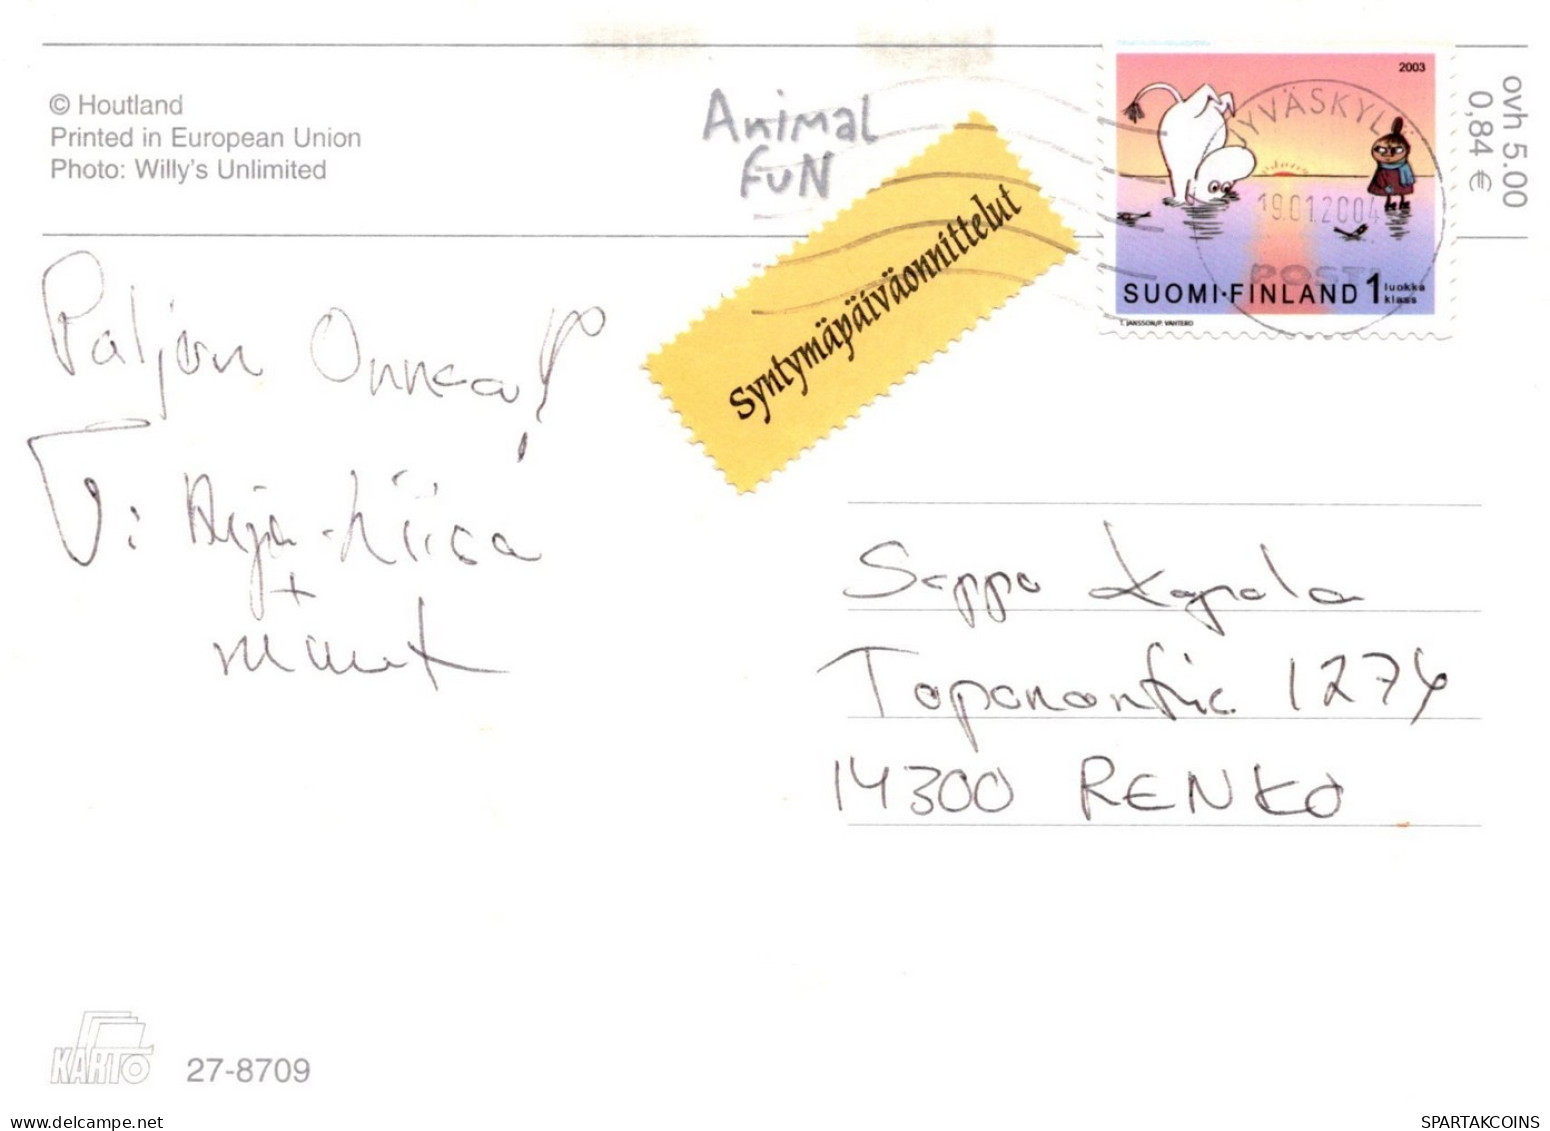 © Houtland
Printed in European Union
Photo: Willy's Unlimited
Animal
FUN
Syntymäpäiväonnittelut
2003
JYVÄSKYLÄ
19.01.2004
POSTI
SUOMI·FINLAND 1 luokka
klass
T. JANSSON/P. VAHTERO
ovh 5.00
0,84 €
Paljon Onnea!
T: Arja-Liisa
+
muut
Seppo Kapala
1274
14300 RENKO
KARTO
27-8709
my-store.delcampe.net
SPARTAKCOINS